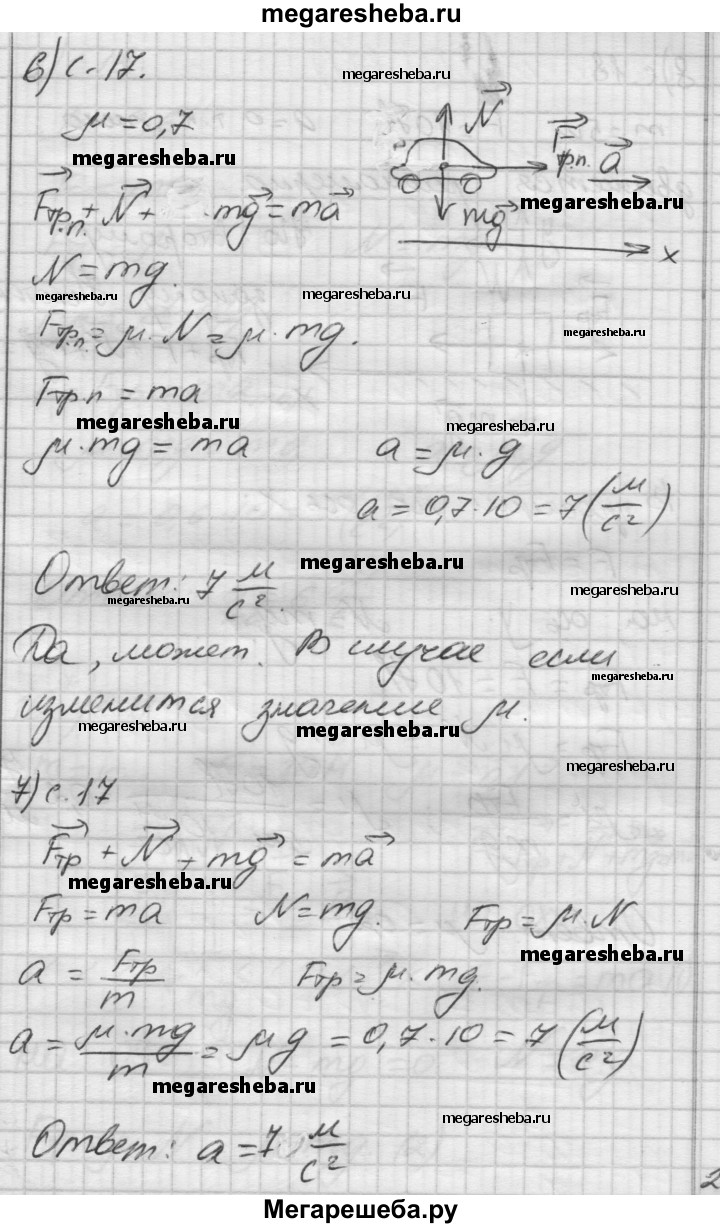 megaresheba.ru
6) с. 17.
megaresheba.ru
μ = 0,7
megaresheba.ru
N⃗
F⃗тр.п. a⃗
megaresheba.ru
F⃗тр.п. + N⃗ + mg⃗ = ma⃗
mg⃗
x
N = mg.
megaresheba.ru megaresheba.ru
Fтр.п. = μ·N = μ·mg.
megaresheba.ru
Fтр.п = ma
megaresheba.ru megaresheba.ru
μ·mg = ma a = μ·g
a = 0,7·10 = 7 (м/с²)
megaresheba.ru
Ответ: 7 м/с².
megaresheba.ru megaresheba.ru
Да, может. В случае если
megaresheba.ru
изменится значение μ.
megaresheba.ru megaresheba.ru
megaresheba.ru
7) с. 17
F⃗тр + N⃗ + mg⃗ = ma⃗
megaresheba.ru
Fтр = ma N = mg. Fтр = μ·N
megaresheba.ru
a = Fтр/m Fтр = μ·mg.
a = μ·mg/m = μg = 0,7·10 = 7 (м/с²)
megaresheba.ru
megaresheba.ru
Ответ: a = 7 м/с²
2
Мегарешеба.ру